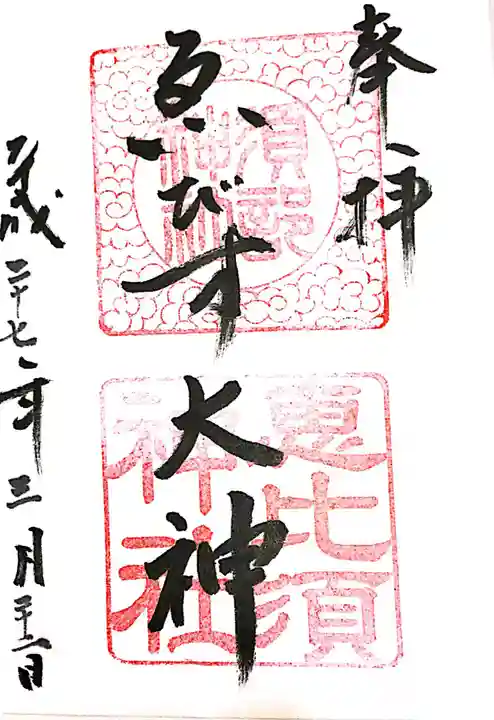 奉拝
恵びす
大神
須部
神社
恵比須
神社
平成二十七年三月二十二日